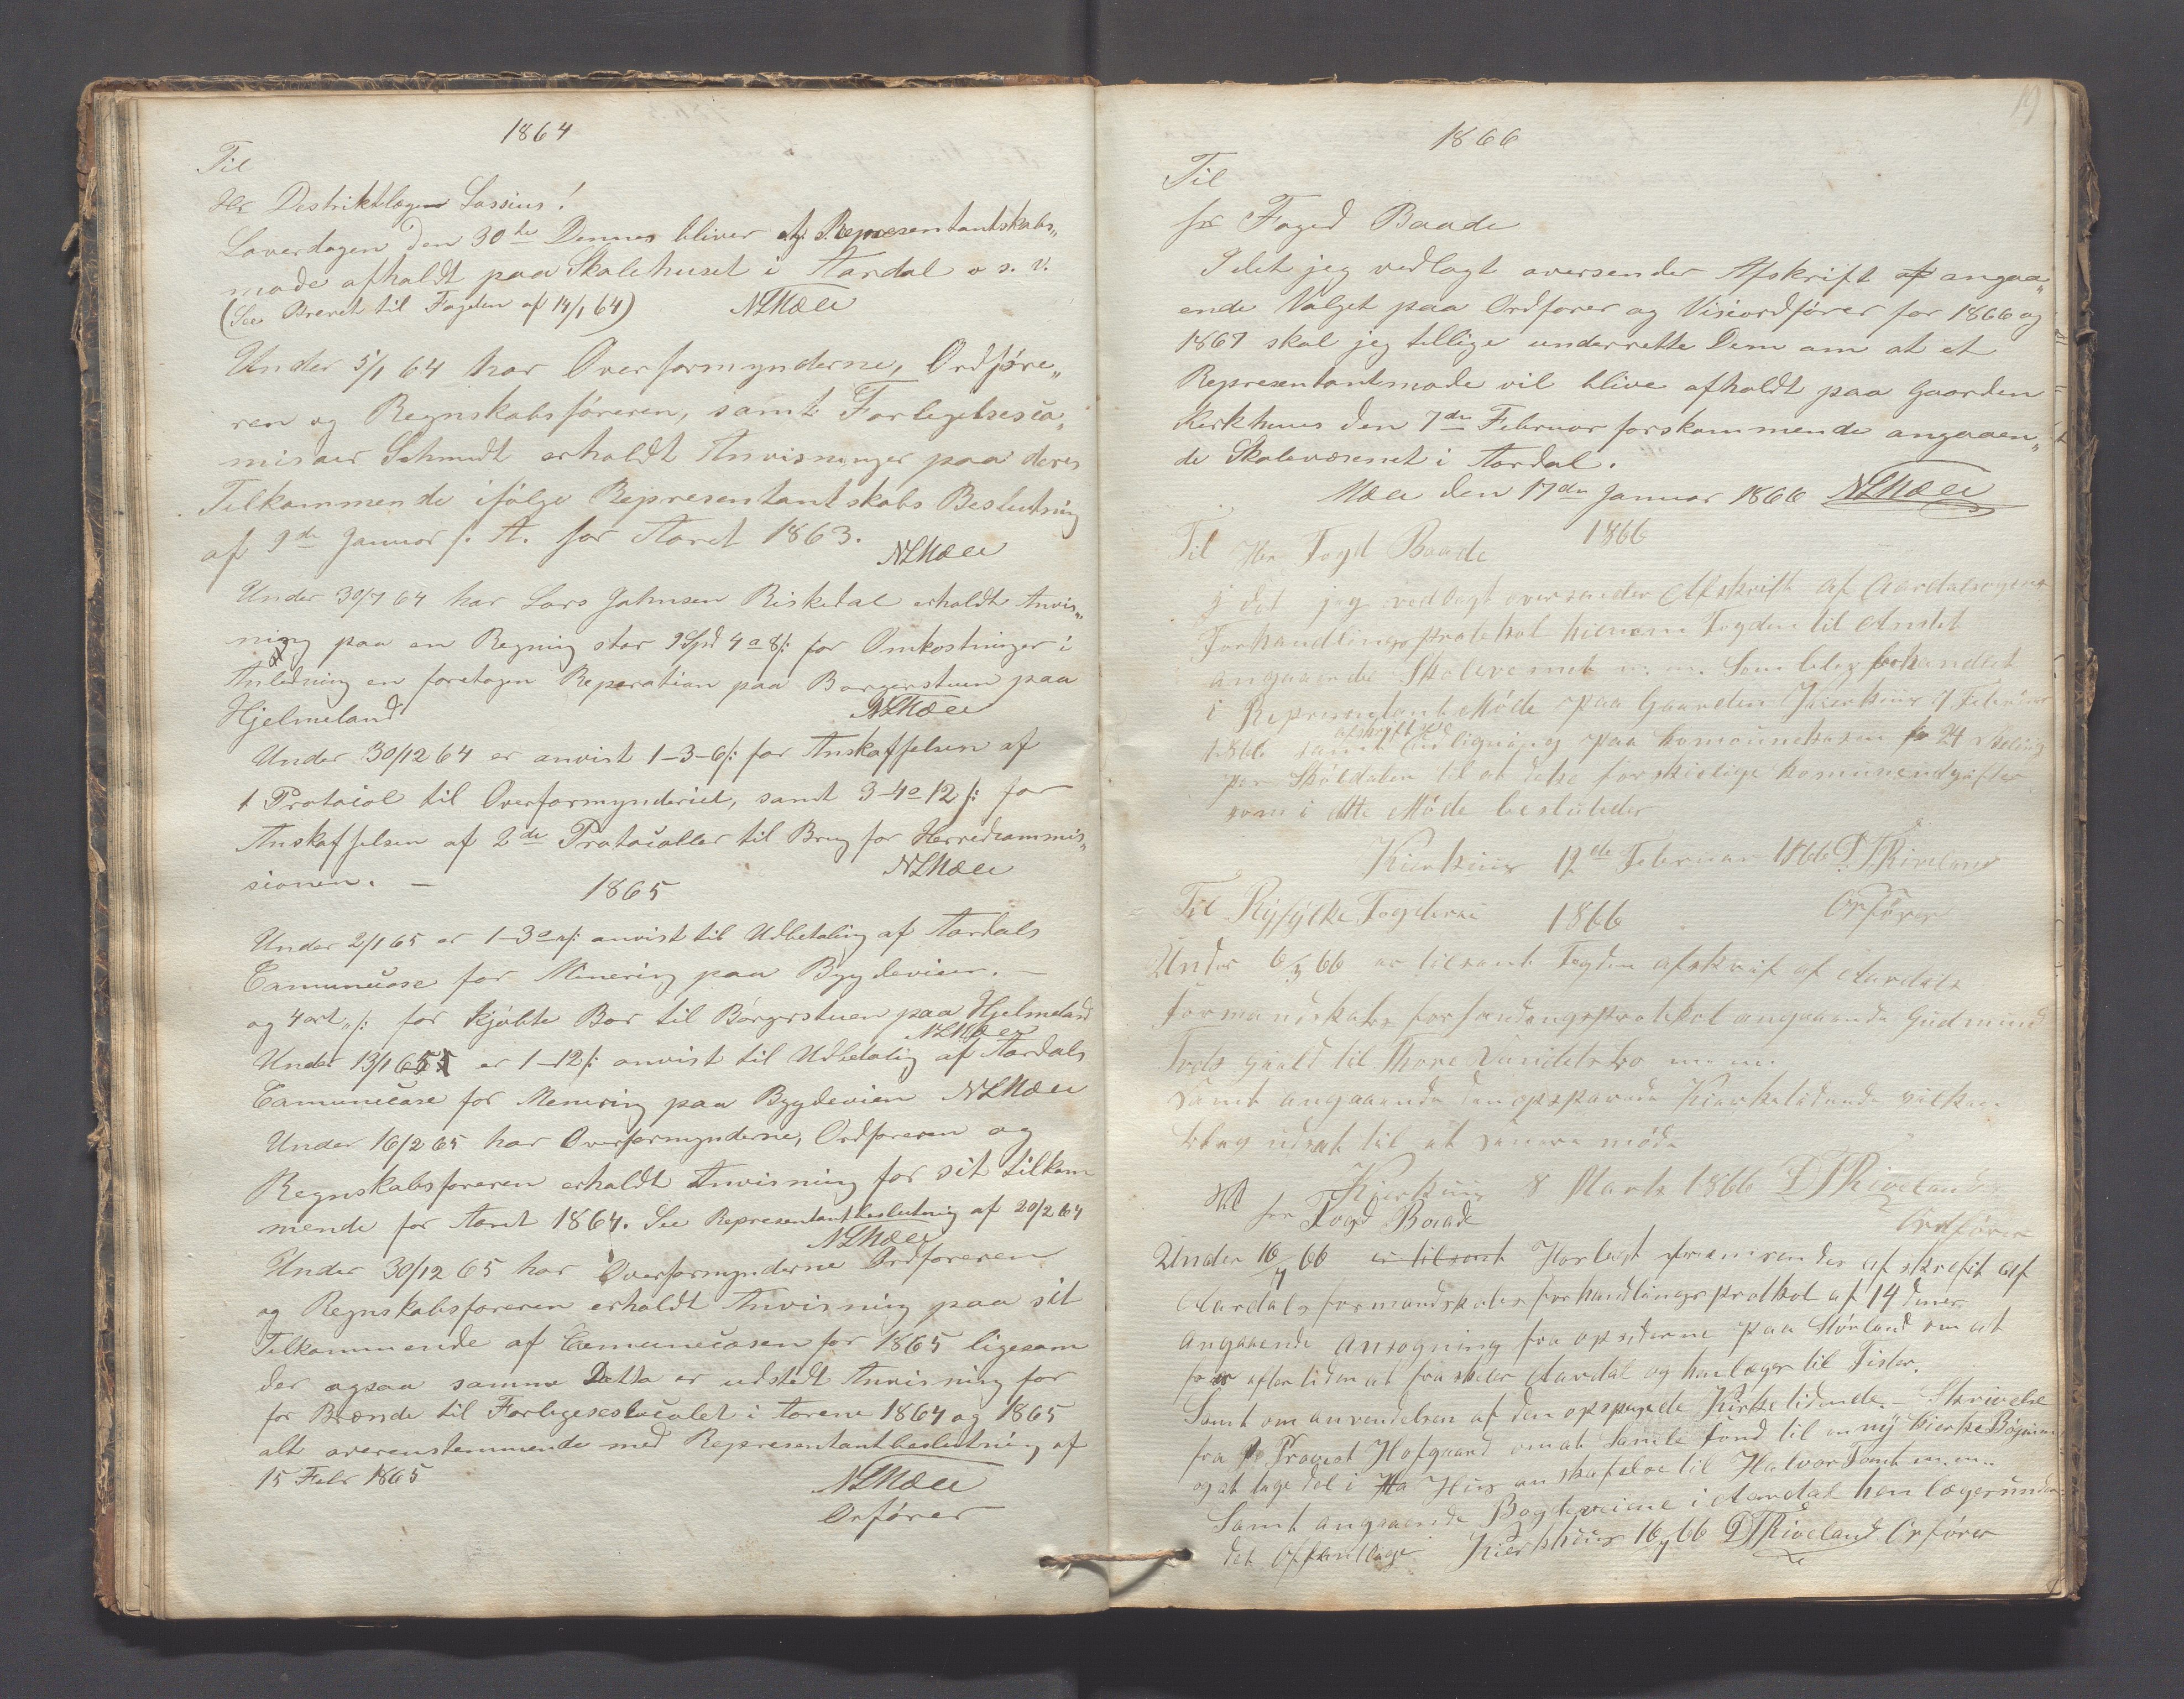 1864
Til
Hr Distriktslægen Lassius!
Løverdagen den 30te Dennes bliver et Representantskabs„
møde afholdt paa Skolehuset i Aardal o s. v.
(See Brevet til Fogden af 14/1 64) NLMæle
Under 5/1 64 har Overformynderne, Ordføre„
ren og Regnskabsføreren, samt Forligelsesco„
misær Schmidt erholdt Anvisninger paa deres
Tilkommende ifølge Representantskabs Beslutning
af 9de Januar f. A. for Aaret 1863.
NLMæle
Under 30/7 64 har Lars Johnsen Riskedal erholdt Anvis„
ning paa en Regning stor 9 Spd 4 a 8 s: for Omkostninger i
Anledning en foretagen Reperation paa Borgerstuen paa
Hjelmeland NLMæle
Under 30/12 64 er anvist 1-3-6 s: for Anskaffelsen af
1 Protocol til Overformynderiet, samt 3-4a 12 s: for
Anskaffelsen af 2de Protocoller til Brug for Herredscommis„
sionen. — NLMæle
1865
Under 2/1 65 er 1-3a s: anvist til Udbetaling af Aardals
Comunecase for Minering paa Bygdeveien. —
og 4 ort „ s: for kjøbte Bor til Borgerstuen paa Hjelmeland
NLMæle
Under 13/1 65 er 1-12 s: anvist til Udbetaling af Aardals
Comunecase for Menering paa Bygdeveien NLMæle
Under 16/2 65 har Overformynderne, Ordføreren og
Regnskabsføreren erholdt Anvisning for sit tilkom
mende for Aaret 1864. See Representantbeslutning af 20/2 64
NLMæle
Under 30/12 65 har Overformynderne Ordføreren
og Regnskabsføreren erholdt Anvisning paa sit
Tilkommende af Comunecasen for 1865 ligesom
der ogsaa samme Datto er udstedt Anvisning for
for Brænde til Forligeseslocalet i Aarene 1864 og 1865
alt overenstemmende med Representantbeslutning af
15 Febr 1865 NLMæle
Orfører
19
1866
Til
Hr Foged Baade
Idet jeg vedlagt oversender Afskrift af angaa„
ende Valget paa Ordfører og Viseordfører for 1866 og
1867 skal jeg tillige underrette Dem om at et
Representantmøde vil blive afholdt paa Gaarden
Kirkhuus den 7de Februar forskommende angaaen„
de Skolevæsenet i Aardal.
Mæle den 17de Januar 1866 NLMæle
1866
Til Her Fogd Baade
I det jeg vedlagt oversender Afskrift af Aardalsogens
Forhandlingsprotokol Fogden til Amtet
angaaende Skolevesnet m. m. Som forhandlet
i Representant Møde paa Gaarden Kierkuus 7 Februar
afskrift
1866 samt Udligning paa Komounekasen 24 Skeling
per Skyldaler til at forskielige Komuneudgifter
som i dtte Møde besluteder
Kierkuus 12de Februar 1866 D TRiveland
Orfører
Til Ryfylke Fogderie 1866
Under 6/3 66 er tilsent Fogden afskrif af Aardals
Formandskabs forhandlingsprotokol angaaende Gudmund
til Thore m. m.
Samt angaaende den opsparede Kierketidende
udsat til et senere møde
Kierkuus 8 Marts 1866 DTRiveland
Ordfører
Til Her Fogd Baade
Under 16/4 66 er tilsent Herlagt fremsendes afskrefit af
Aardals formandskabs forhandlings protkol af 14 denes
angaaende ansøgning fra opsiderne paa om at
for eftertiden at fraskiler Aardal og henlæges til Fister.
Samt om anvendelsen af den opsparede Kirketidende. — Skrivelse
fra Provst Hofgaard om at Samle fond til en ny Kierke
og at tage del i Hus anskafelse til Halvor Tomt m. m.
Samt angaaende Bogdeveiene i Aardal henlæges under
det Offentlige. Kierkhuus 16/4 66 DTRiveland Orfører